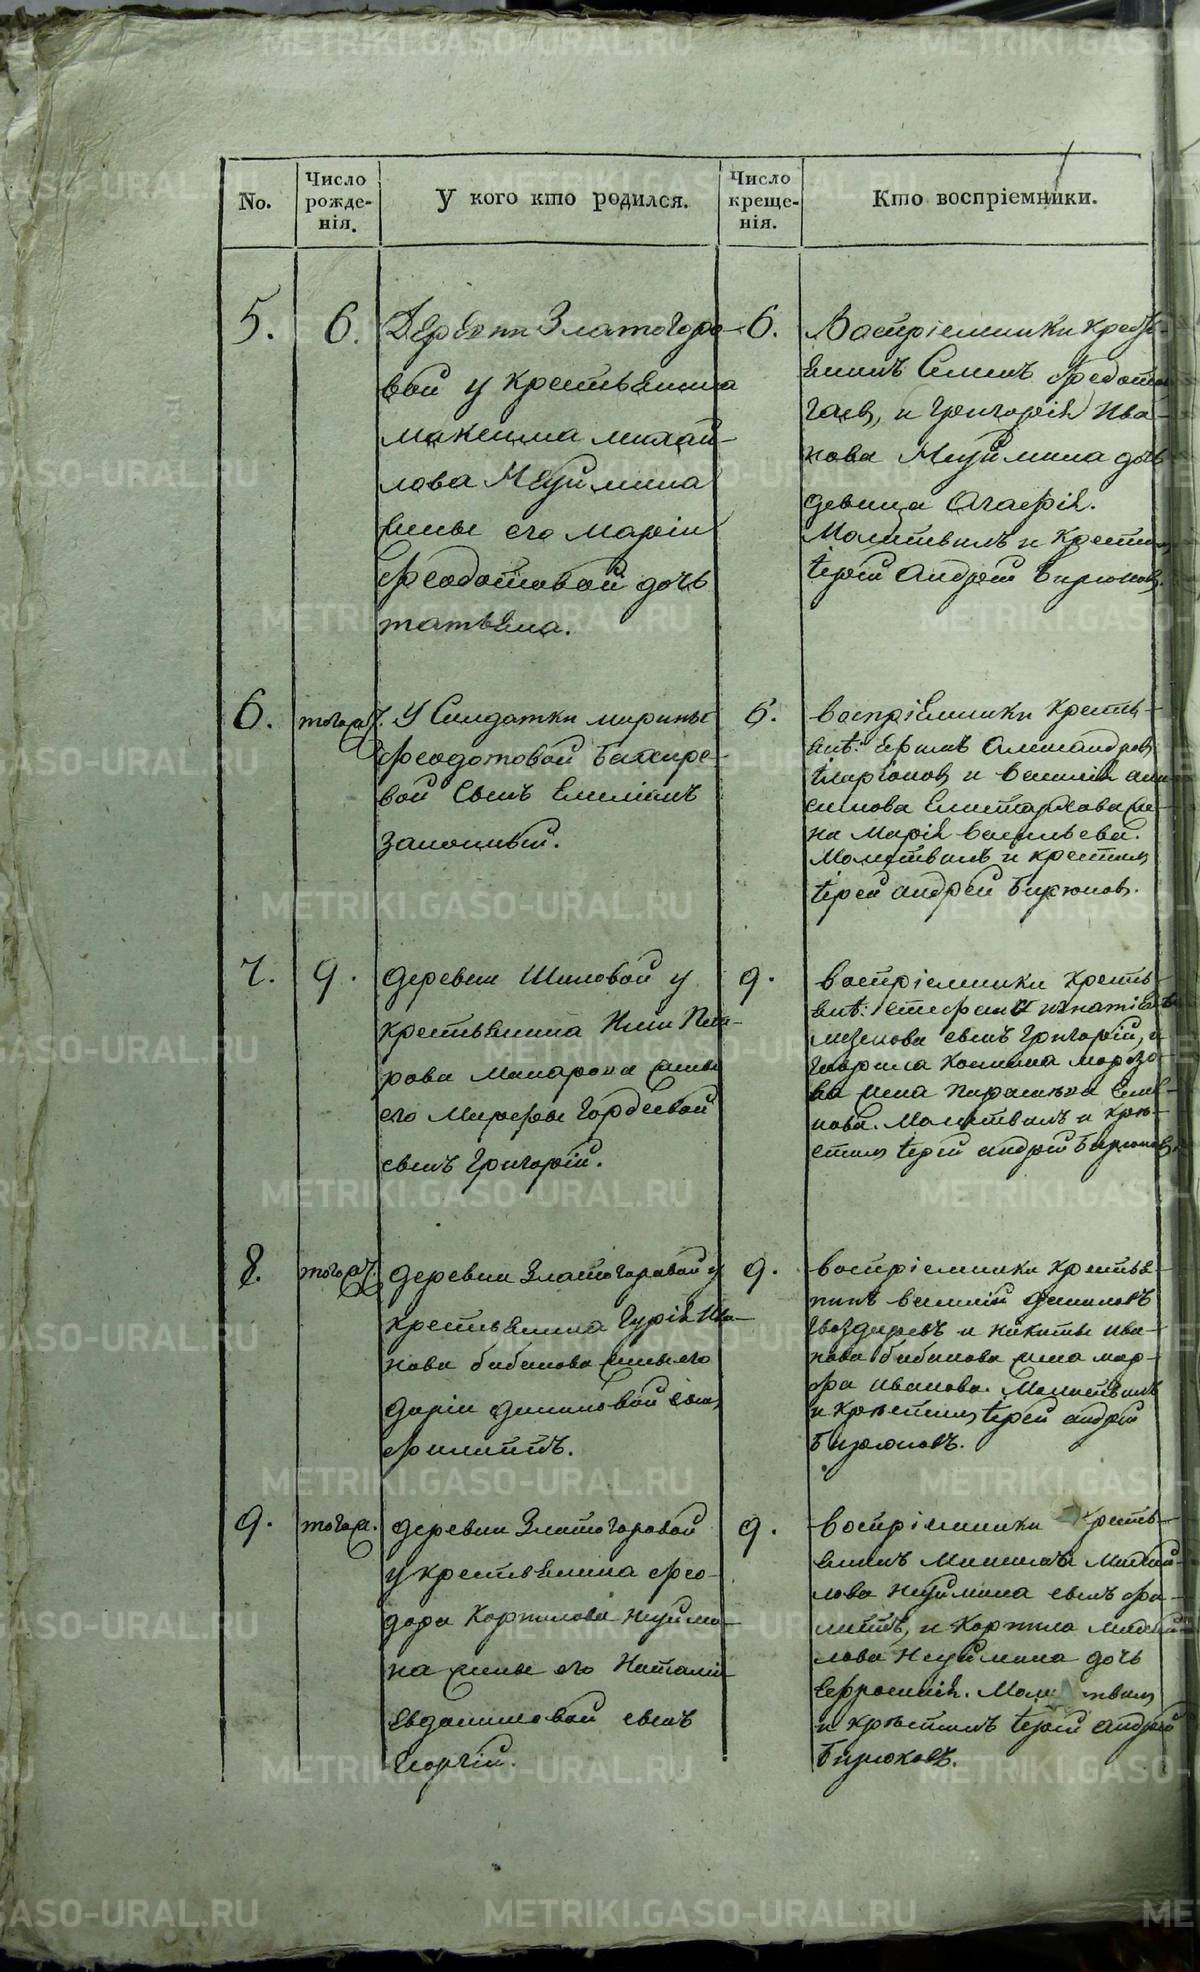 No.
Число рожде-нія.
У кого кто родился.
Число креще-нія.
Кто воспріемники.
5.
6.
Деревни Златогоро-
вой у крестьянина
Максима Михай-
лова Неуймина
жены его Маріи
Феодотовой дочь
Татьяна.
6.
Воспріемники кресть-
янинъ
и Григорій Ива-
нова Неуймина дочь
девица Агафія.
Молитвилъ и крестилъ
Іерей Андрей Бирюковъ.
6.
того ж.
У Солдатки Марины
Феодотовой
вой сынъ Емеліанъ
законный.
6.
воспріемники кресть-
ян:
и Василій
жена Марія Васильева.
Молитвилъ и крестилъ
Іерей Андрей Бирюковъ.
7.
9.
деревни Шиловой у
крестьянина Иліи Пет-
рова Макарова жены
его Марфы Гордеевой
сынъ Григорій.
9.
воспріемники кресть-
ян: Стефана Игнатіева
сынъ Григорій, и
Гаврила Козмина Морозо-
ва жена Парасковья
Молитвилъ и кре-
стилъ Іерей Андрей Бирюковъ.
8.
того ж.
деревни Златогоровой у
крестьянина Гурія Ива-
нова Бабинова жены его
Даріи сынъ
Филиппъ.
9.
воспріемники крестья-
нинъ Василій
и Никиты Ива-
нова Бабинова жена Мар-
фа Иванова. Молитвилъ
и крестилъ Іерей Андрей
Бирюковъ.
9.
того ж.
деревни Златогоровой
у крестьянина Фео-
дора Корнилова Неуйми-
на жены его Наталіи
Евдокимовой сынъ
Георгій.
9.
воспріемники кресть-
янинъ Михай-
лова Неуймина сынъ Фи-
липпъ, и Корнила Михай-
лова Неуймина дочь
Ефросинія. Молитвилъ
и крестилъ Іерей Андрей
Бирюковъ.
METRIKI.GASO-URAL.RU